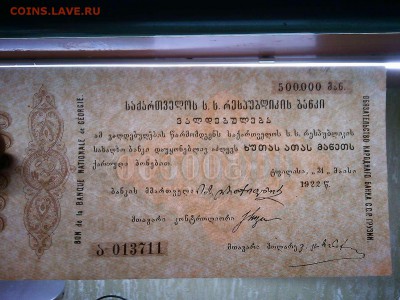 COINS.LAVE.RU
500.000 მან.
საქართველოს ს. ს. რესპუბლიკის ბანკი
ვალდებულება
ამ ვალდებულების წარმომდგენს საქართველოს ს. ს. რესპუბლიკის
სახალხო ბანკი დაუყონებლივ აძლევს ხუთას ათას მანეთს
ქართული ბონებით.
ტფილისი, „31„ მაისი
1922 წ.
ბანკის მმართველი
მთავარი კონტროლიორი
მთავარი მოლარე
ა-013711
BON de la BANQUE NATIONALE de GÉORGIE
ОБЯЗАТЕЛЬСТВО НАРОДНАГО БАНКА С.С.Р. ГРУЗИИ